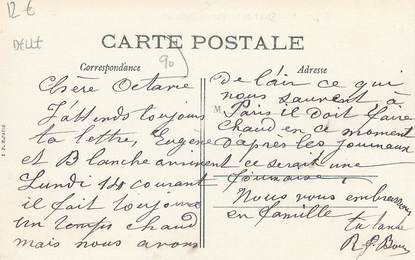 12 €
DELLE
CARTE POSTALE
Correspondance
90
Adresse
Chère Octavie
J'attends toujours
ta lettre, Eugène
et Blanche arrivent
Lundi 14 courant
il fait toujours
un temps chaud
mais nous avons
de l'air ce qui
nous
M
Paris il doit faire
chaud en ce moment
d'après les journaux
ce serait une
fournaise
Nous vous embrassons
en famille
ta tante